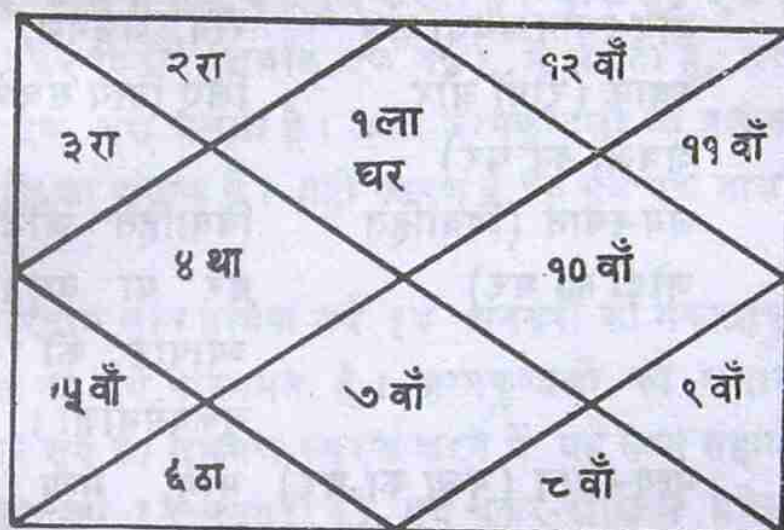 २ रा
१२ वाँ
३ रा
१ला
घर
११ वाँ
४ था
१० वाँ
५ वाँ
७ वाँ
९ वाँ
६ ठा
८ वाँ